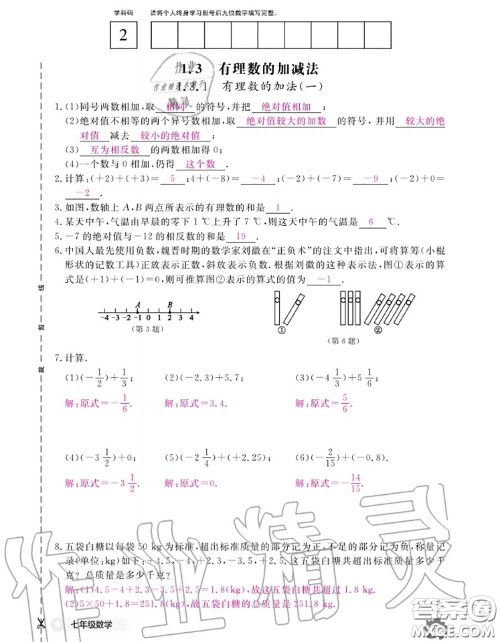 学科码 请将个人终身学习账号后九位数字填写完整。
2
1.3 有理数的加减法
1.3.1 有理数的加法(一)
1.(1)同号两数相加,取 相同 的符号,并把 绝对值相加 .
(2)绝对值不相等的两个异号数相加,取 绝对值较大的加数 的符号,并用 较大的绝
对值 减去 较小的绝对值 ;
(3) 互为相反数 的两数相加得0;
(4)一个数与0相加,仍得 这个数 .
2.计算:(+2)+(+3)= 5 ;4+(-8)= -4 ;(-2)+(-7)= -9 ;(-2)+0=
-2 .
3.如图,数轴上A,B两点所表示的有理数的和是 1 .
4.某天中午,气温由早晨的零下1℃上升了7℃,则这天中午的气温是 6 ℃.
5.-7的绝对值与-12的相反数的和是 19 .
6.中国人最先使用负数,魏晋时期的数学家刘徽在“正负术”的注文中指出,可将算筹(小棍
形状的记数工具)正放表示正数,斜放表示负数.根据刘徽的这种表示法,图①表示的算
式是(+1)+(-1)=0,则可推算图②表示的算式的值为 -1 .
A B
-4 -3 -2 -1 0 1 2 3 4
(第3题)
① ②
(第6题)
7.计算.
(1)(-1/2)+1/3; (2)(-2.3)+5.7;
解:原式=-1/6. 解:原式=3.4. 解:原式=5/6.
(4)(-3 1/2)+0; (6)(-2/15)+(-0.8).
解:原式=-3 1/2. 解:原式=0. 解:原式=-14/15.
8.五袋白糖以每袋50 kg为标准,超出标准质量的部分记为正,不足的部分记为负,称量记
(1)4.5-4+2.3-3.5+2.5=1.8(kg),故这五袋白糖共超过1.8 kg.
(2)5×50+1.8=251.8(kg),故五袋白糖的总质量是251.8 kg.
七年级数学